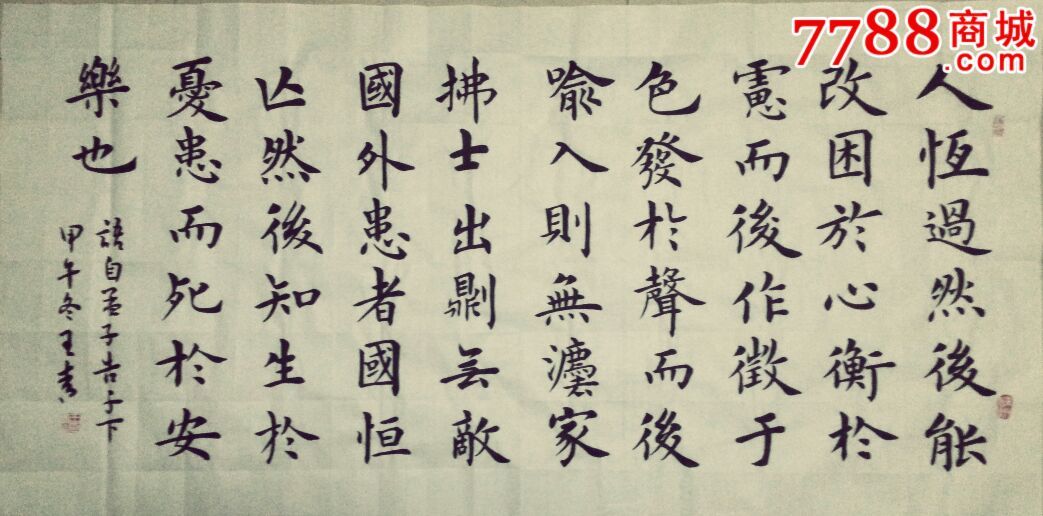 7788商城
.com
人恆過然後能
改困於心衡於
慮而後作徵于
色發於聲而後
喻入則無灋家
拂士出則无敵
國外患者國恒
亡然後知生於
憂患而死於安
樂也
語自孟子告子下
甲午冬王